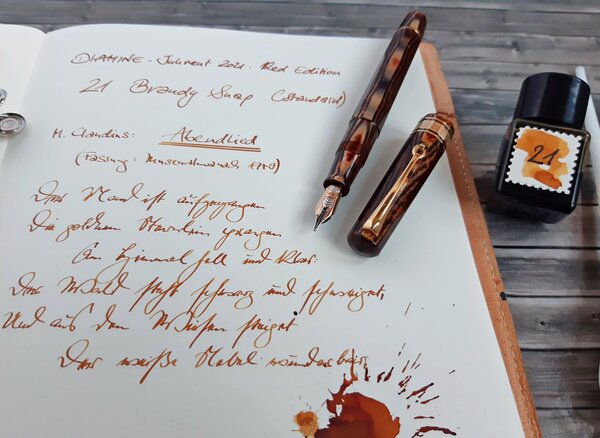 DIAMINE · Inkvent 2021 · Red Edition
21 Brandy Snap (standard)
M. Claudius: Abendlied
(Fassung: Musenalmanach 1779)
Der Mond ist aufgegangen
Die goldnen Sternlein prangen
Am Himmel hell und klar
Der Wald steht schwarz und schweiget,
Und aus den Wiesen steiget
Der weiße Nebel wunderbar.
21